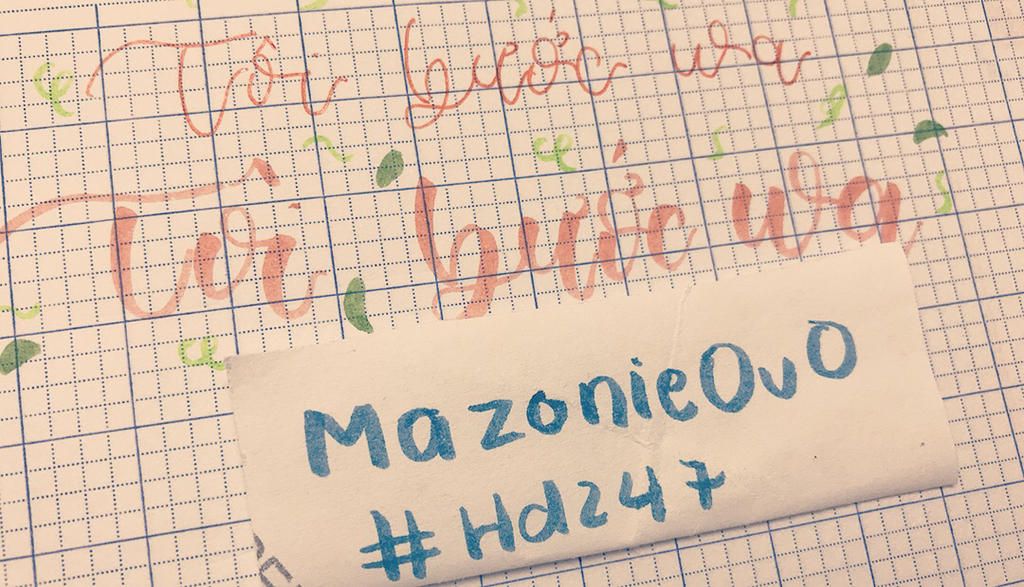 Tôi bước wa
Tôi bước wa
MazonieOvO
#Hdz47